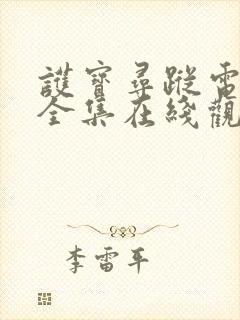 護寶尋蹤電
全集在綫觀
李雷平